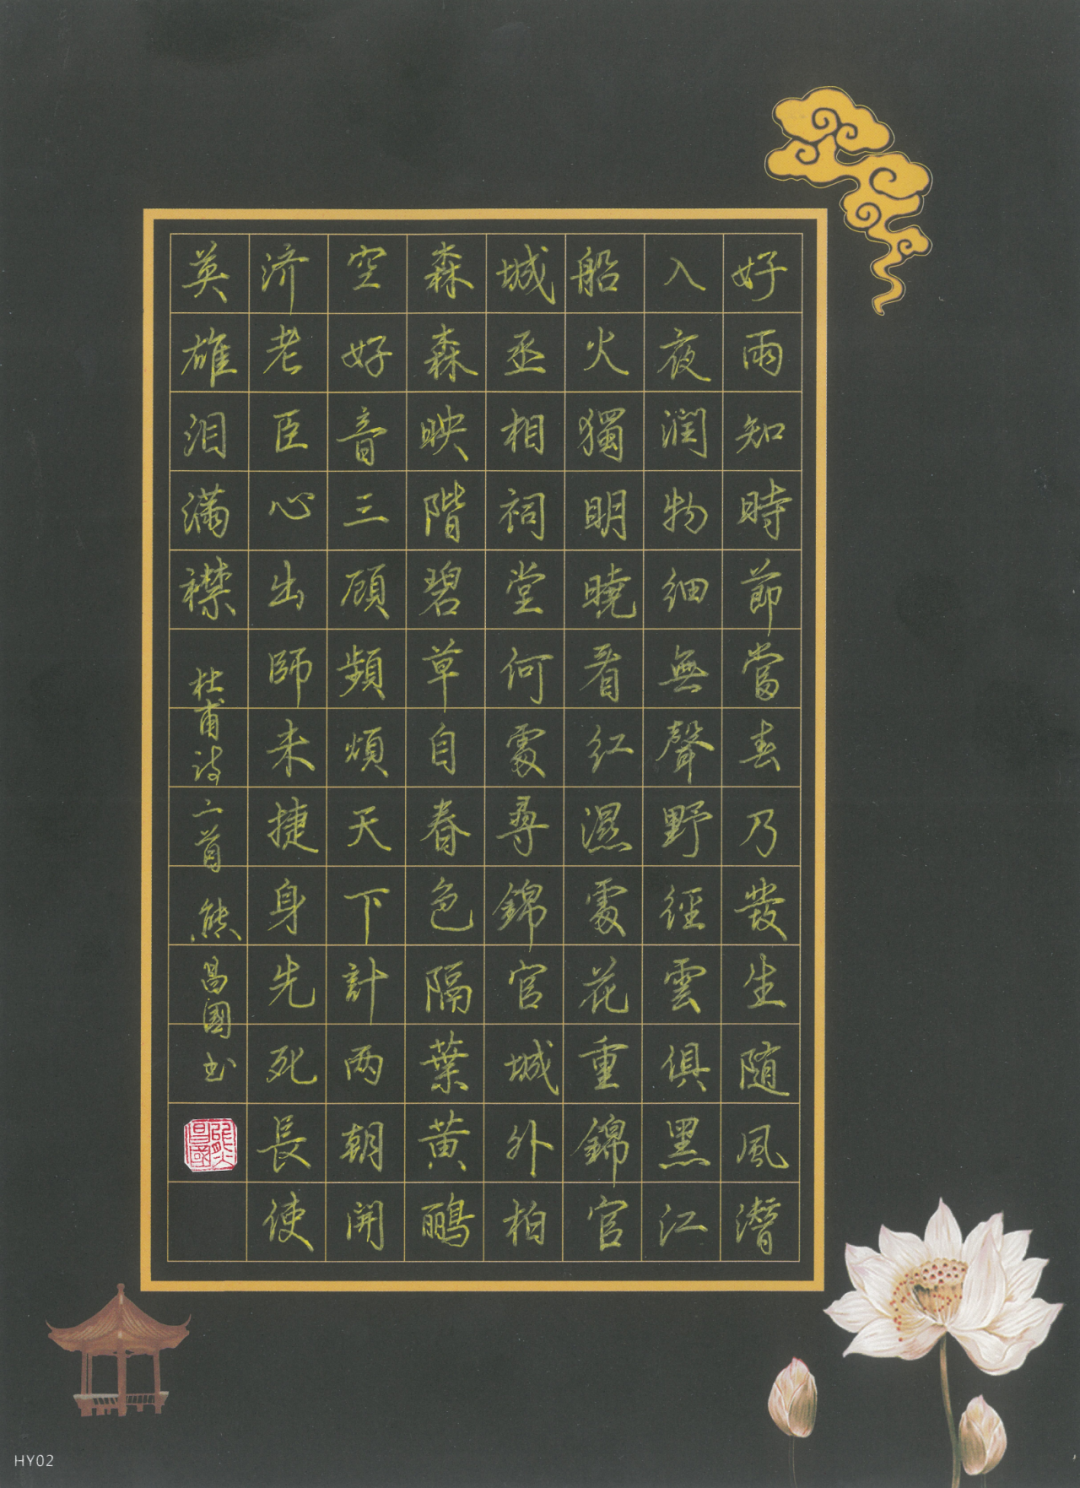 好雨知時節當春乃發生随風潛
入夜润物细無聲野徑雲俱黑江
船火獨明曉看红濕處花重錦官
城丞相祠堂何處尋錦官城外柏
森森映階碧草自春色隔葉黄鹂
空好音三顾頻煩天下計两朝開
济老臣心出師未捷身先死長使
英雄泪满襟
杜甫诗二首 熊昌國书
熊昌國
HY02